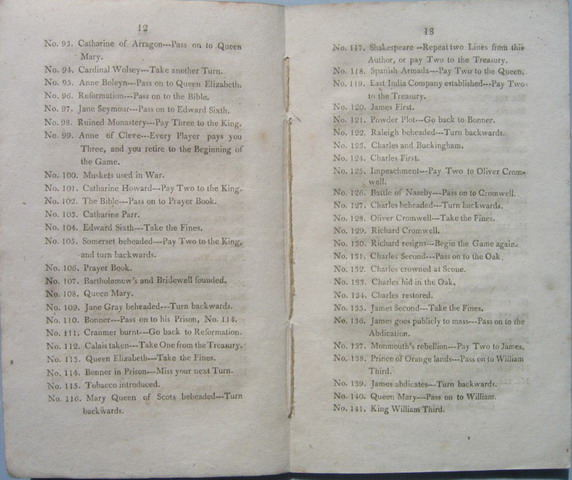 12
No. 93. Catharine of Arragon---Pass on to Queen
Mary.
No. 94. Cardinal Wolsey---Take another Turn.
No. 95. Anne Boleyn---Pass on to Queen Elizabeth.
No. 96. Reformation---Pass on to the Bible.
No. 97. Jane Seymour---Pass on to Edward Sixth.
No. 98. Ruined Monastery---Pay Three to the King.
No. 99. Anne of Cleve---Every Player pays you
Three, and you retire to the Beginning of
the Game.
No. 100. Muskets used in War.
No. 101. Catharine Howard---Pay Two to the King.
No. 102. The Bible---Pass on to Prayer Book.
No. 103. Catharine Parr.
No. 104. Edward Sixth---Take the Fines.
No. 105. Somerset beheaded---Pay Two to the King,
and turn backwards.
No. 106. Prayer Book.
No. 107. Bartholomew's and Bridewell founded.
No. 108. Queen Mary.
No. 109. Jane Gray beheaded---Turn backwards.
No. 110. Bonner---Pass on to his Prison, No. 114.
No. 111. Cranmer burnt---Go back to Reformation.
No. 112. Calais taken---Take One from the Treasury.
No. 113. Queen Elizabeth---Take the Fines.
No. 114. Bonner in Prison---Miss your next Turn.
No. 115. Tobacco introduced.
No. 116. Mary Queen of Scots beheaded---Turn
backwards.
13
No. 117. Shakespeare--Repeat two Lines from this
Author, or pay Two to the Treasury.
No. 118. Spanish Armada---Pay Two to the Queen.
No. 119. East India Company established---Pay Two
to the Treasury.
No. 120. James First.
No. 121. Powder Plot---Go back to Bonner.
No. 122. Raleigh beheaded---Turn backwards.
No. 123. Charles and Buckingham.
No. 124. Charles First.
No. 125. Impeachment---Pay Two to Oliver Crom-
well.
No. 126. Battle of Naseby---Pass on to Cromwell.
No. 127. Charles beheaded---Turn backwards.
No. 128. Oliver Cromwell---Take the Fines.
No. 129. Richard Cromwell.
No. 130. Richard resigns---Begin the Game again.
No. 131. Charles Second---Pass on to the Oak.
No. 132. Charles crowned at Scone.
No. 133. Charles hid in the Oak.
No. 134. Charles restored.
No. 135. James Second---Take the Fines.
No. 136. James goes publicly to mass---Pass on to the
Abdication.
No. 137. Monmouth's rebellion---Pay Two to James.
No. 138. Prince of Orange lands---Pass on to William
Third.
No. 139. James abdicates---Turn backwards.
No. 140. Queen Mary---Pass on to William.
No. 141. King William Third.